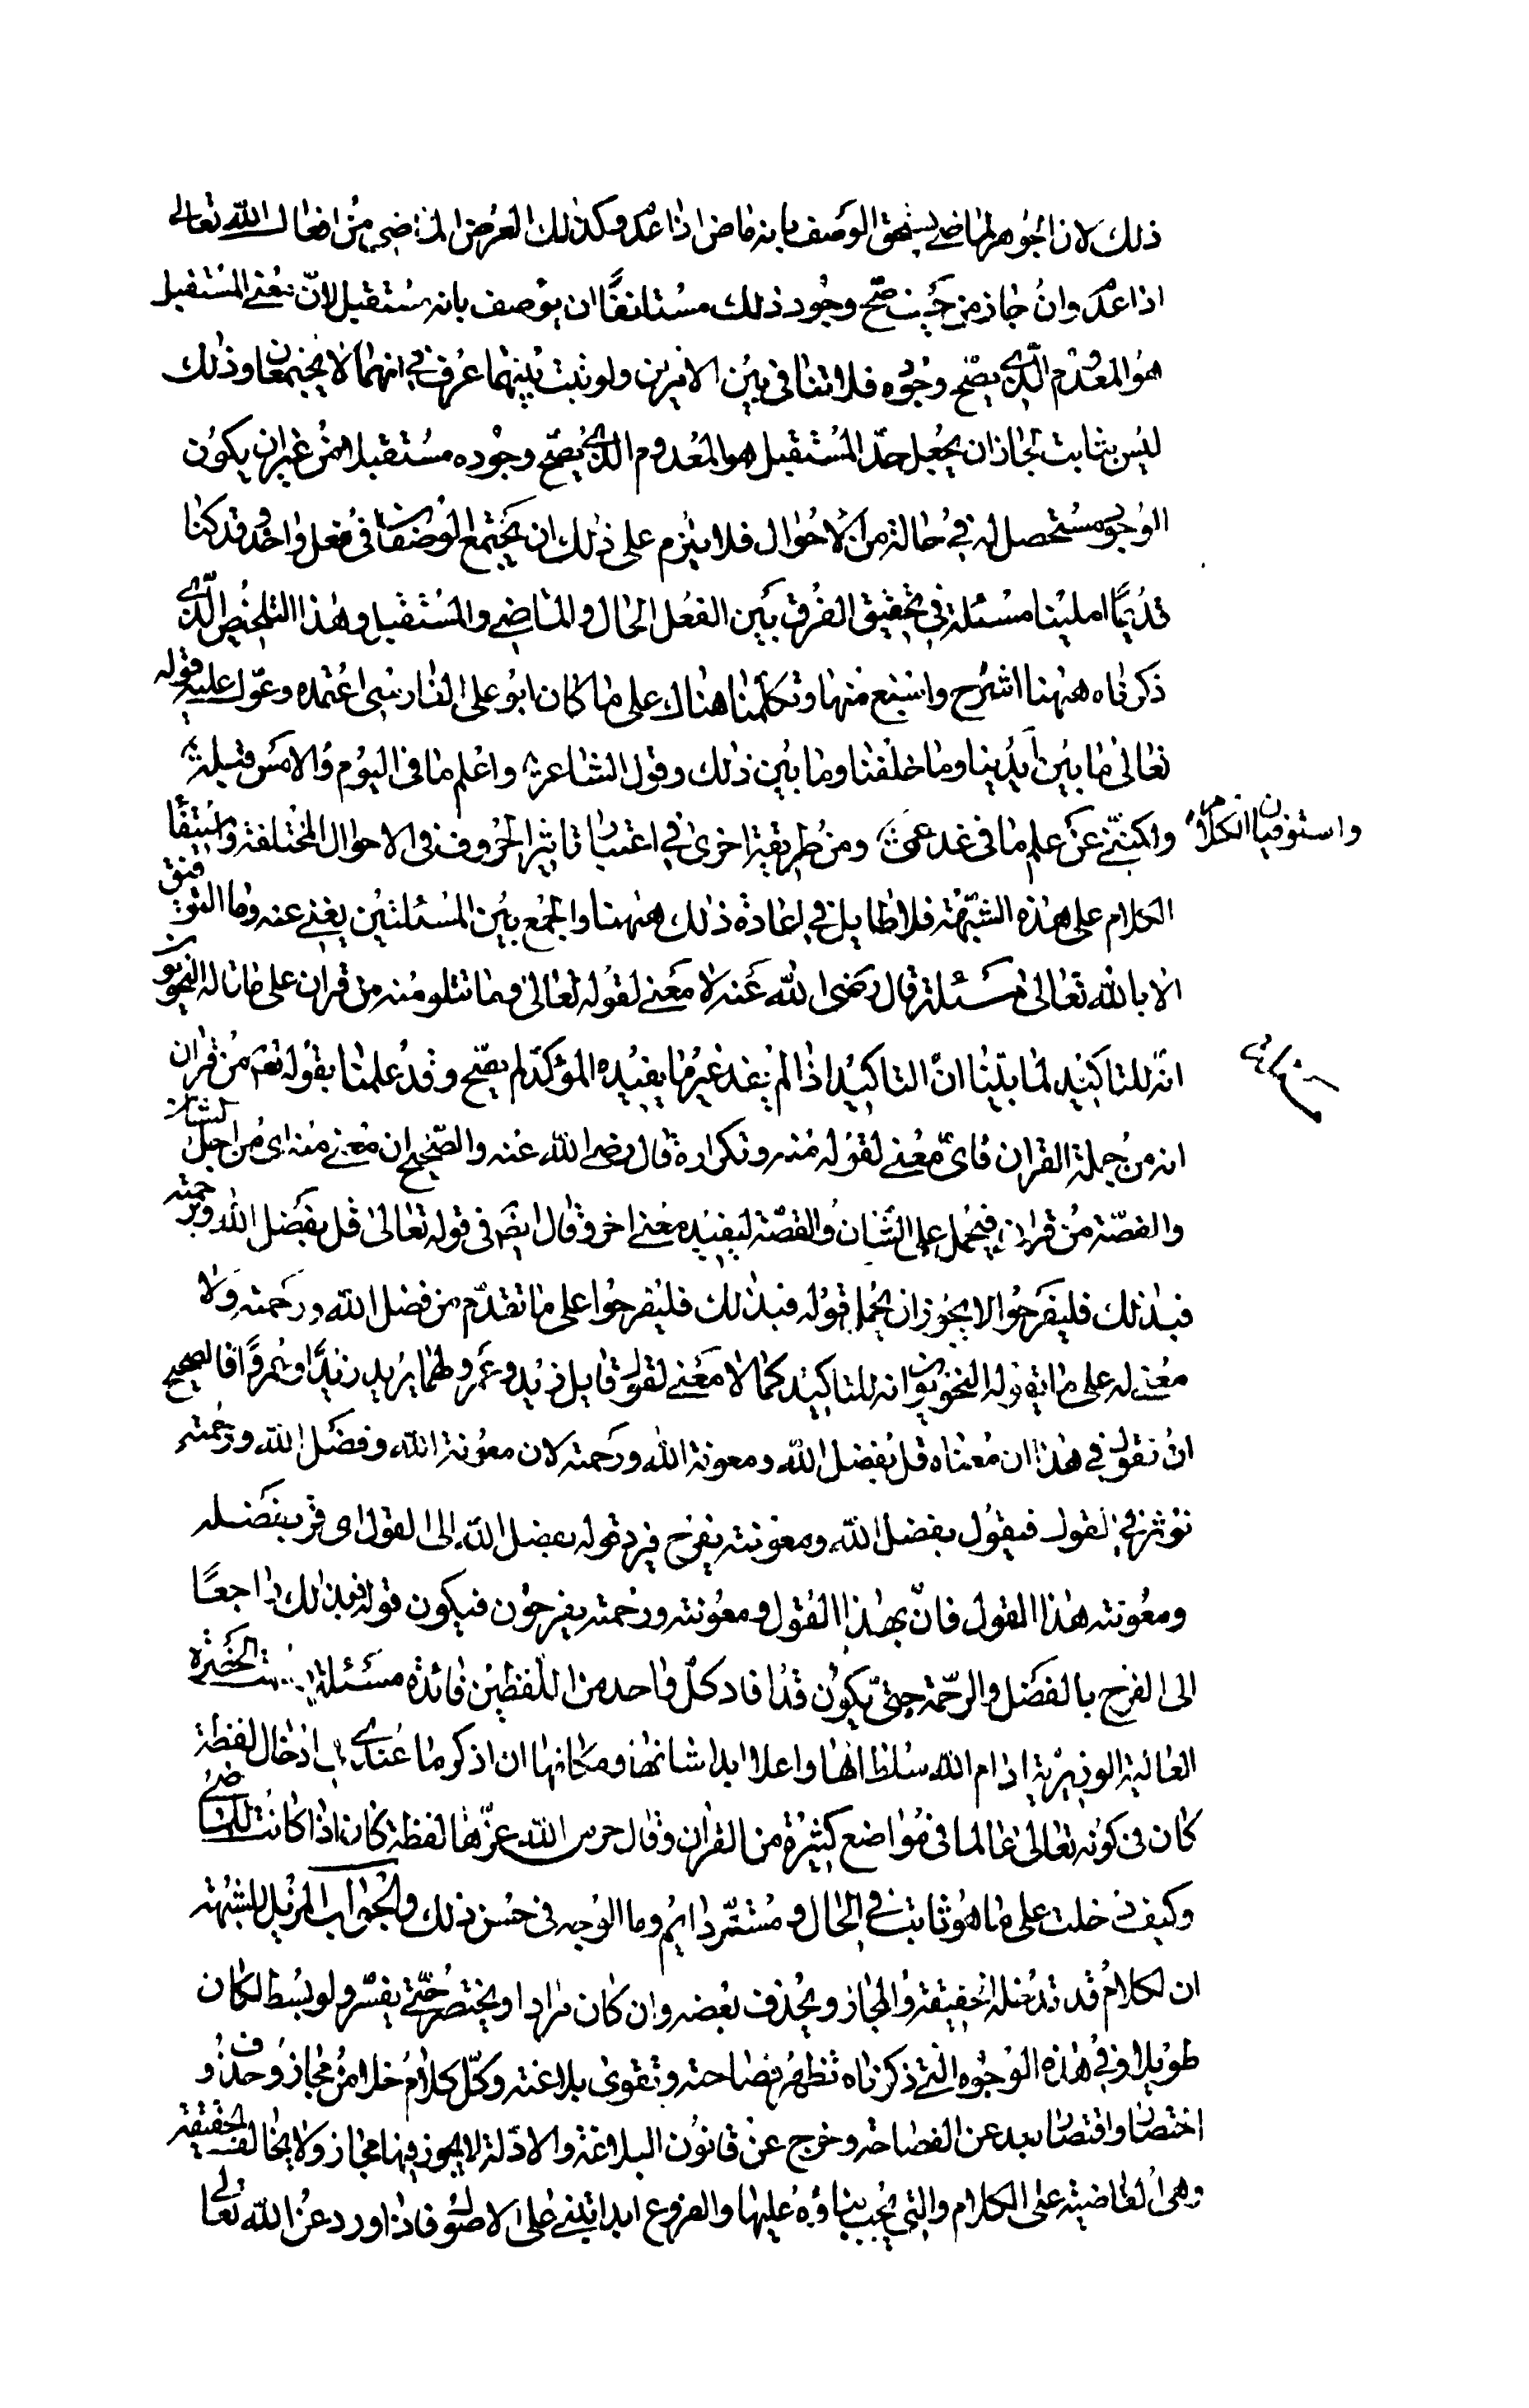 ذلك لان الجوهر الماضي يستحق الوصف بانه ماض اذا عدم وكذلك العرض الماضي من افعال الله تعالى
اذا عدم وان جاز من حيث صح وجود ذلك مستانفا ان يوصف بانه مستقبل لان معنى المستقبل
هو المعدوم الذي يصح وجوده فلا تنافي بين الامرين ولو ثبت بينهما عرف في انهما لا يجتمعان وذلك
ليس بثابت لجاز ان يجعل حد المستقبل هو المعدوم الذي يصح وجوده مستقبلا من غير ان يكون
الوجود مستحصل له في حالة من الاحوال فلا يلزم على ذلك ان يجتمع الوصفان في فعل واحد وقد كنا
قديما املينا مسئلة في تحقيق الفرق بين الفعل الحال والماضي والمستقبل وهذا التلخيص الذي
ذكرناه ههنا اشرح واشبع منها وتكلمنا هناك على ما كان ابو على الفارسى اعتمده وعول عليه قوله
تعالى ما بين ايدينا وما خلفنا وما بين ذلك وقول الشاعر واعلم ما في اليوم والامس قبله
ولكنني عن علم ما في غد عمى ومن طريقة اخرى في اعتبار تاثير الحروف في الاحوال المختلفة واستيفا
واستوفينا الكلام
الكلام على هذه الشبهة فلا طايل في اعادة ذلك ههنا والجمع بين المسئلتين يغني عنه وما التوفيق
الا بالله تعالى مسئلة قال رضى الله عنه لا معنى لقوله تعالى وما تتلو منه من قران على ما قاله النحويون
انه للتاكيد لما بينا ان التاكيد اذا لم يفد غير ما يفيده المؤكد لم يصح وقد علمنا بقوله تعم من قران
انه من جملة القران فاى معنى لقوله منه وتكراره قال رضى الله عنه والصحيح ان معنى منه اى من اجل الشان
والقصة من قران فيحمل على الشان والقصة ليفيد معنى اخر وقال ايضم في قوله تعالى قل بفضل الله وبرحمته
فبذلك فليفرحوا لا يجوز ان يحمل قوله فبذلك فليفرحوا على ما تقدم من فضل الله ورحمته ولا
معنى له على ما يقوله النحويون انه للتاكيد كما لا معنى لقول قايل زيد وعمرو لهما يريد زيدا وعمرا فالصحيح
ان نقول في هذا ان معناه قل بفضل الله ومعونة الله ورحمته لان معونة الله وفضل الله ورحمته
تؤثر في القول فيقول بفضل الله ومعونته يفرح فيرد قوله بفضل الله الى القول اى بفضله
ومعونته هذا القول فان بهذا القول ومعونته ورحمته يفرحون فيكون قوله فبذلك راجعا
الى الفرح بالفضل والرحمة حتى يكون قد افاد كل واحد من اللفظين فائدة مسئلة الحضرة
العالية الوزيرية ادام الله سلطانها واعلا ابدا شانها ومكانها ان اذكر ما عندى ادخال لفظة
كان في كونه تعالى عالما في مواضع كثيرة من القران وقال حرس الله عزها لفظة كان اذا كانت للماضي
وكيف دخلت على ما هو ثابت في الحال ومستمر دايم وما الوجه في حسن ذلك والجواب المزيل للشبهة
ان الكلام قد تدخله الحقيقة والمجاز ويحذف بعضه وان كان مرادا ويختصر حتى يفسر ولو بسط لكان
طويلا وفي هذه الوجوه التي ذكرناه تظهر فصاحته وتقوى بلاغته وكل كلام خلا من مجاز وحذف و
اختصار واقتصار بعد عن الفصاحة وخرج عن قانون البلاغة والادلة لا يجوز فيها مجاز ولا يخالف الحقيقة
وهى القاضية على الكلام والتي يجب بناؤه عليها والفروع ابدا تبنى على الاصول فاذا ورد عن الله تعالى